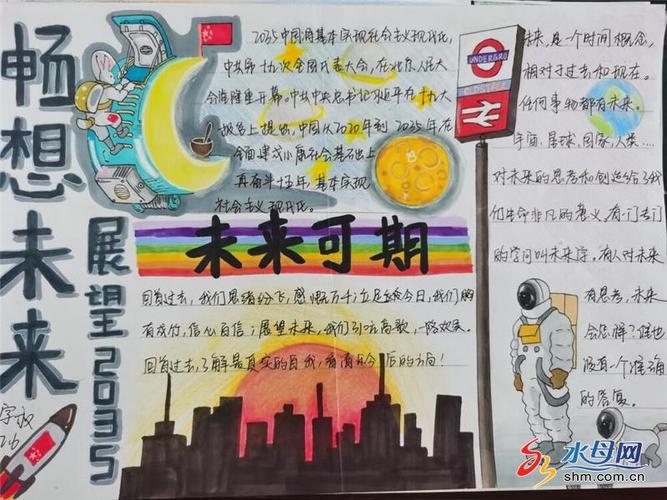 畅想未来
展望2035
2035中国将基本实现社会主义现代化,
中共第十九次全国代表大会,在北京人民大
会堂隆重开幕。中共中央总书记习近平在十九大
报告上提出,中国从2020年到2035年在
全面建成小康社会基础上
再奋斗十五年,基本实现
社会主义现代化。
UNDERGRO
未来可期
回首过去,我们思绪纷飞,感慨万千;立足
今日,我们胸
有成竹,信心百倍;展望未来,我们引吭高歌,一路欢笑。
回首过去,了解最真实的自我,看清今后的方向!
未来,是一个时间概念,
相对于过去和现在。
任何事物都有未来。
宇宙、星球、国家、人类....
对未来的思考和创造给予我
们生命非凡的意义。有一门专门
的学问叫未来学。有人对未来
有思考,未来
会怎样?谁也
没有一个准确
的答复。
水母网
shm.com.cn